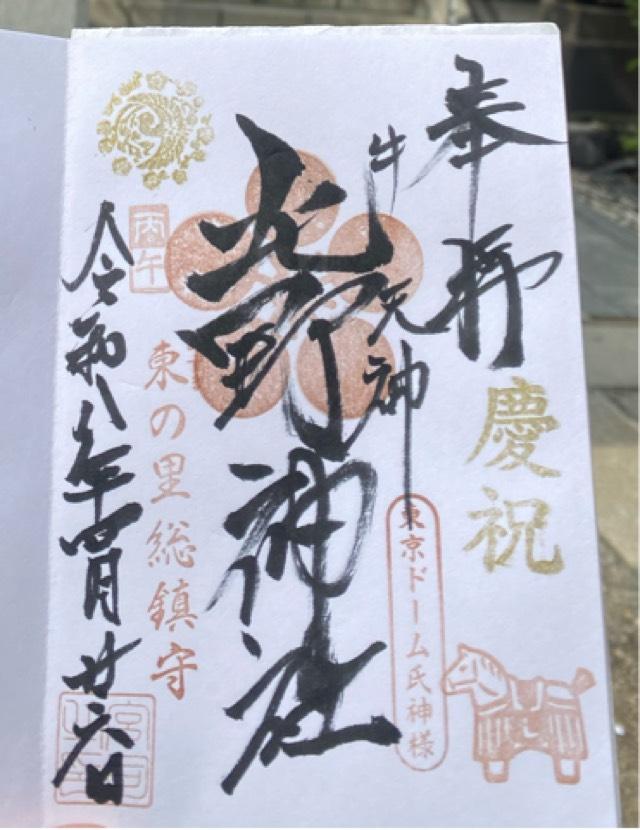 奉拝
慶祝
牛天神
東京ドーム氏神様
北野神社
東の里総鎮守
丙午
令和八年四月廿六日